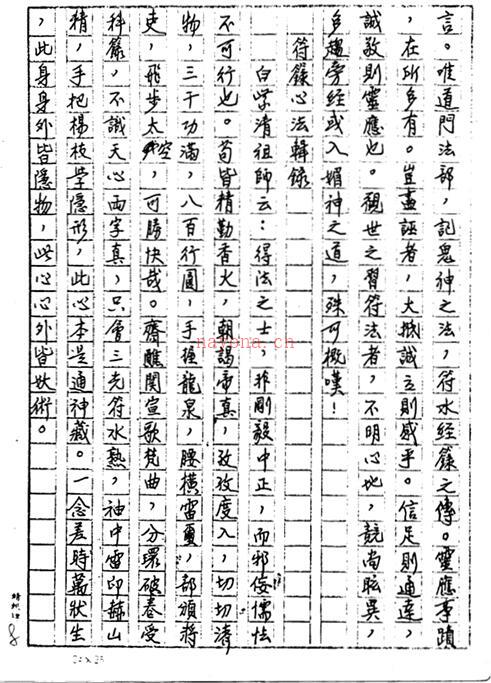 言。唯道門法部，記鬼神之法，符水經籙之傳。靈應事蹟
，在所多有。豈盡誣者，大抵誠立則感乎。信足則通達，
誠敬則靈應也。視世之習符法者，不明心地，競尚眩異，
多趨旁經或入媚神之道，殊可慨嘆！
符籙心法輯錄
白紫清祖師云：得法之士，非剛毅中正，而邪佞懦怯
不可行也。苟皆精勤香火，朝謁帝真，孜孜度人，切切濟
物，三千功滿，八百行圓，手握龍泉，腰橫雷璽，部領蔣
吏，飛步太空，可勝快哉。齋醮関宣歌梵曲，分環破券受
科籙，不識天心兩字真，只會三光符水熟，袖中雷印赫山
精，手把楊枝學隱形，此心本是通神藏。一念差時萬狀生
，此身身外皆隱物，此心心外皆妖術。
8
24×25
nayona.cn